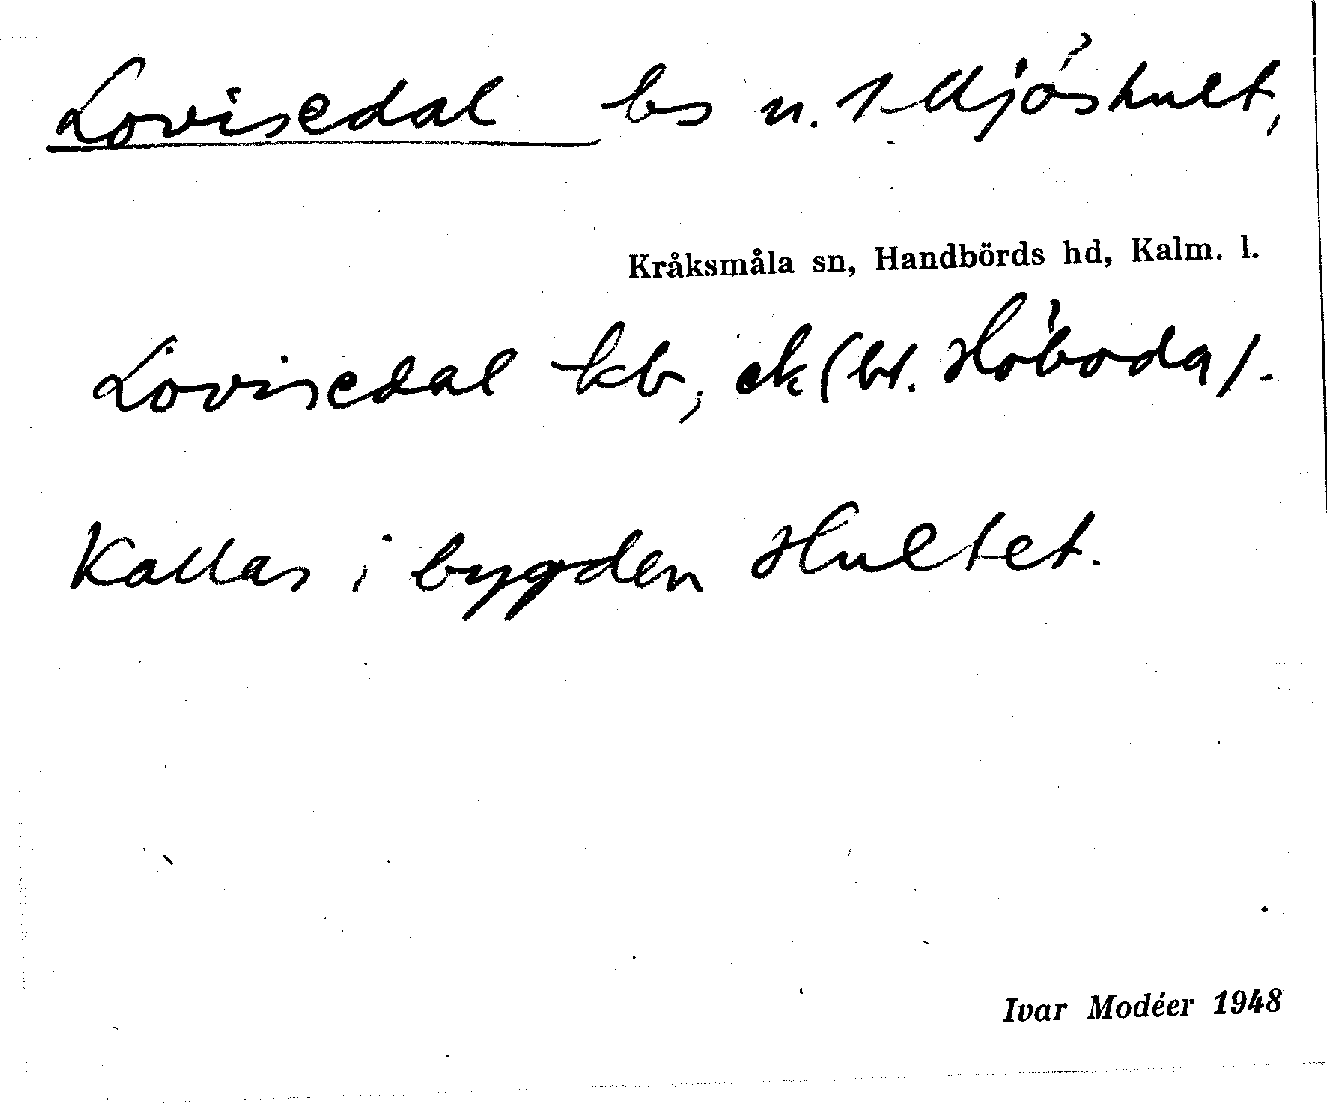 Lovisedal bs u. Mjöshult,
Kråksmåla sn, Handbörds hd, Kalm. l.
Lovisedal kb, ek (bl. Höboda).
Kallas i bygden Hultet.
Ivar Modéer 1948